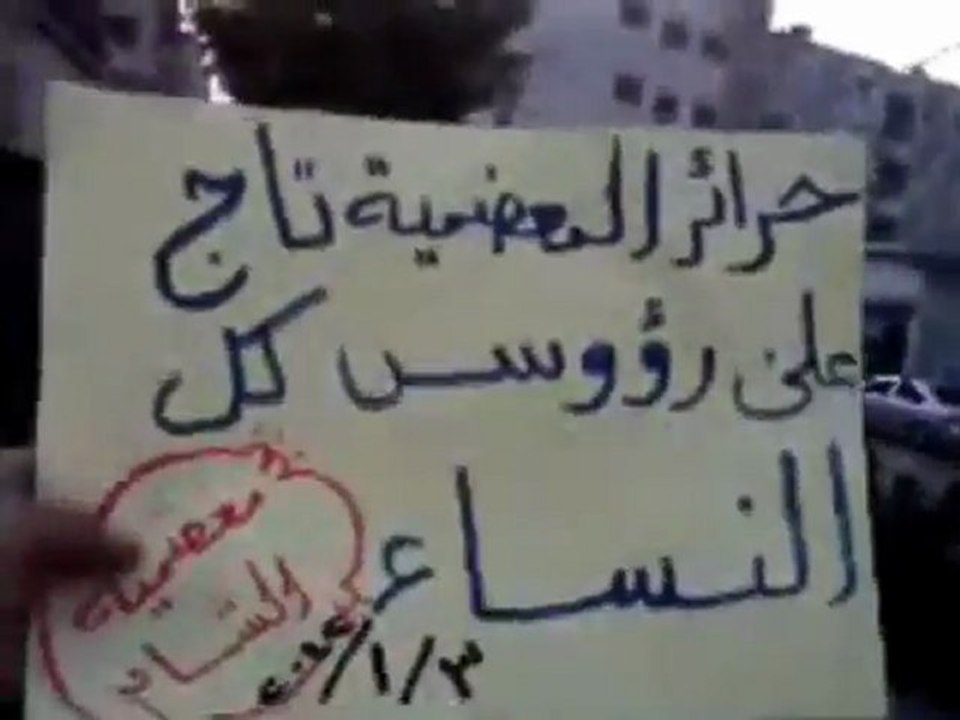 حرائر المعضمية تاج
على رؤوس كل
النساء
معضمية
الشام
٣/١/